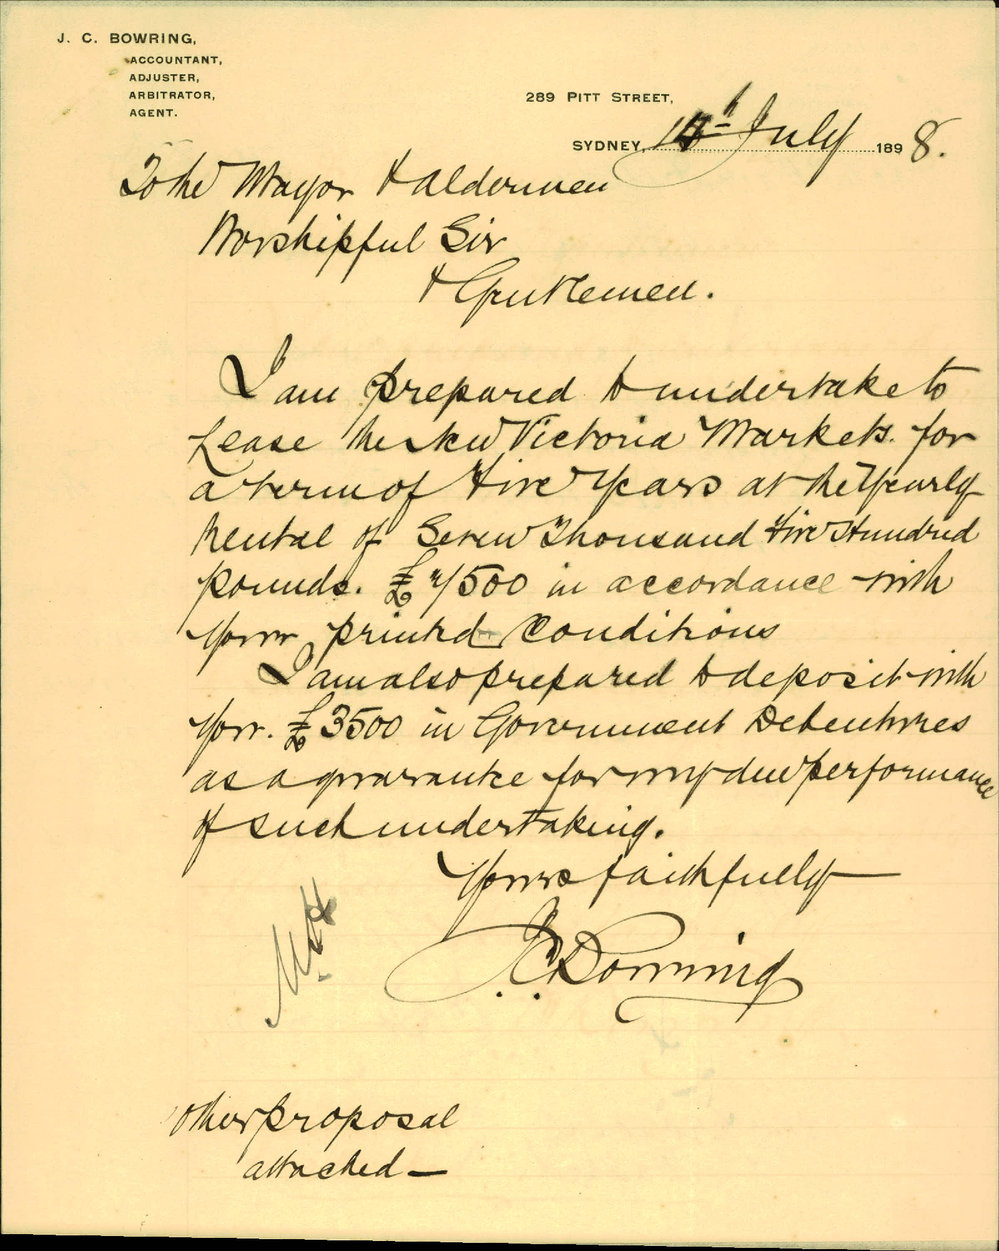 J. C. BOWRING,
ACCOUNTANT,
ADJUSTER,
ARBITRATOR,
AGENT.
289 PITT STREET,
SYDNEY, 14th July 1898.
To the Mayor & Aldermen
Worshipful Sir
& Gentlemen.
I am prepared to undertake to
Lease the New Victoria Markets for
a term of Five Years at the Yearly
Rental of Seven Thousand Five Hundred
pounds. £7500 in accordance with
your printed Conditions
I am also prepared to deposit with
you. £3500 in Government Debentures
as a guarantee for my due performance
of such undertaking.
Yours faithfully
J. C. Bowring
other proposal
attached —